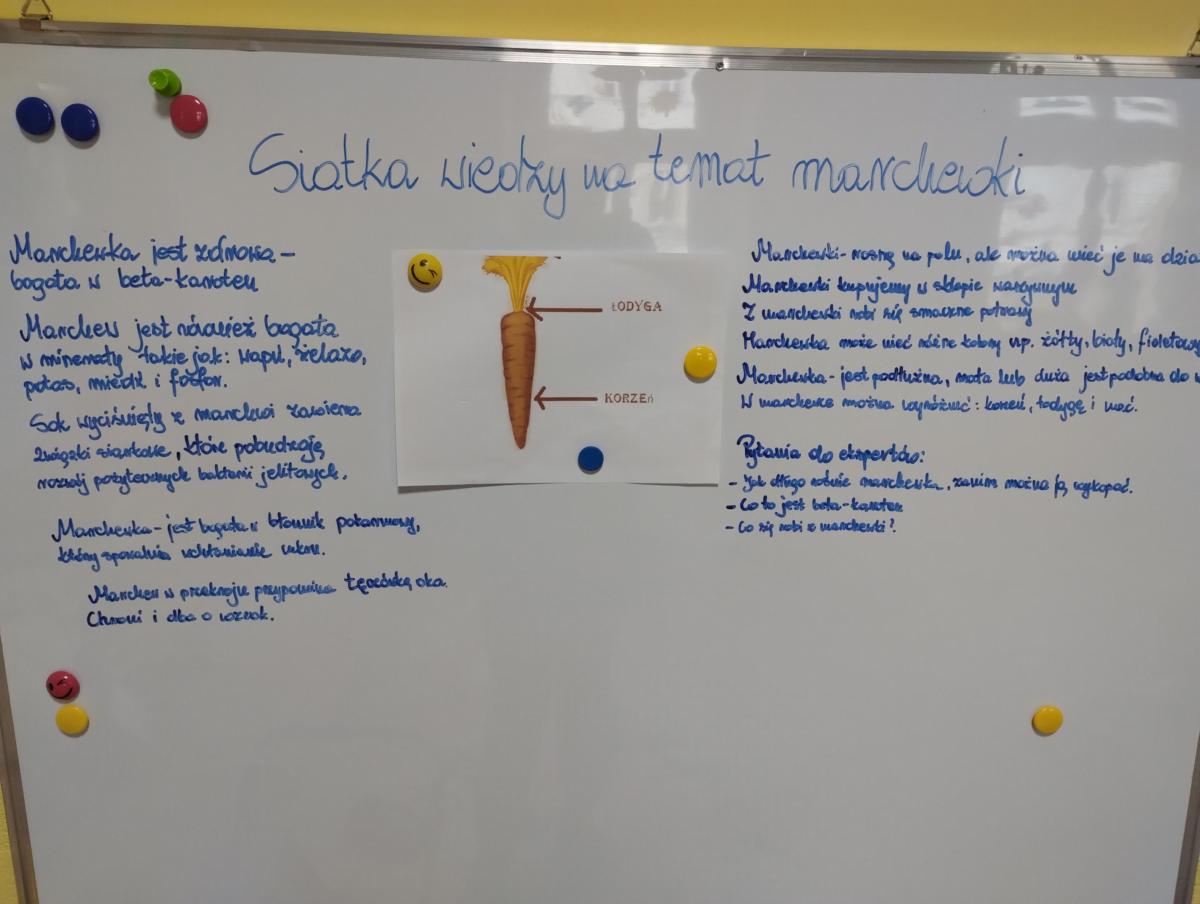 Siatka wiedzy na temat marchewki
Marchewka jest zdrowa -
bogata w beta-karoten
Marchew jest również bogata
w minerały takie jak: wapń, żelazo,
potas, miedź i fosfor.
Sok wyciśnięty z marchwi zawiera
związki siarkowe, które pobudzają
rozwój pożytecznych bakterii jelitowych.
Marchewka - jest bogata w błonnik pokarmowy,
który spowalnia wchłanianie cukru.
Marchew w przekroju przypomina tęczówkę oka.
Chroni i dba o wzrok.
ŁODYGA
KORZEŃ
Marchewki - rosną na polu, ale można mieć je na dzia
Marchewki kupujemy w sklepie warzywnym
Z marchewki robi się smaczne potrawy
Marchewka może mieć różne kolory np. żółty, biały, fioletowy
Marchewka - jest podłużna, mała lub duża jest podobna do
W marchewce można wyróżnić: korzeń, łodygę i nać.
Pytania do ekspertów:
- Jak długo rośnie marchewka, zanim można ją wykopać.
- Co to jest beta-karoten
- Co się robi z marchewki?